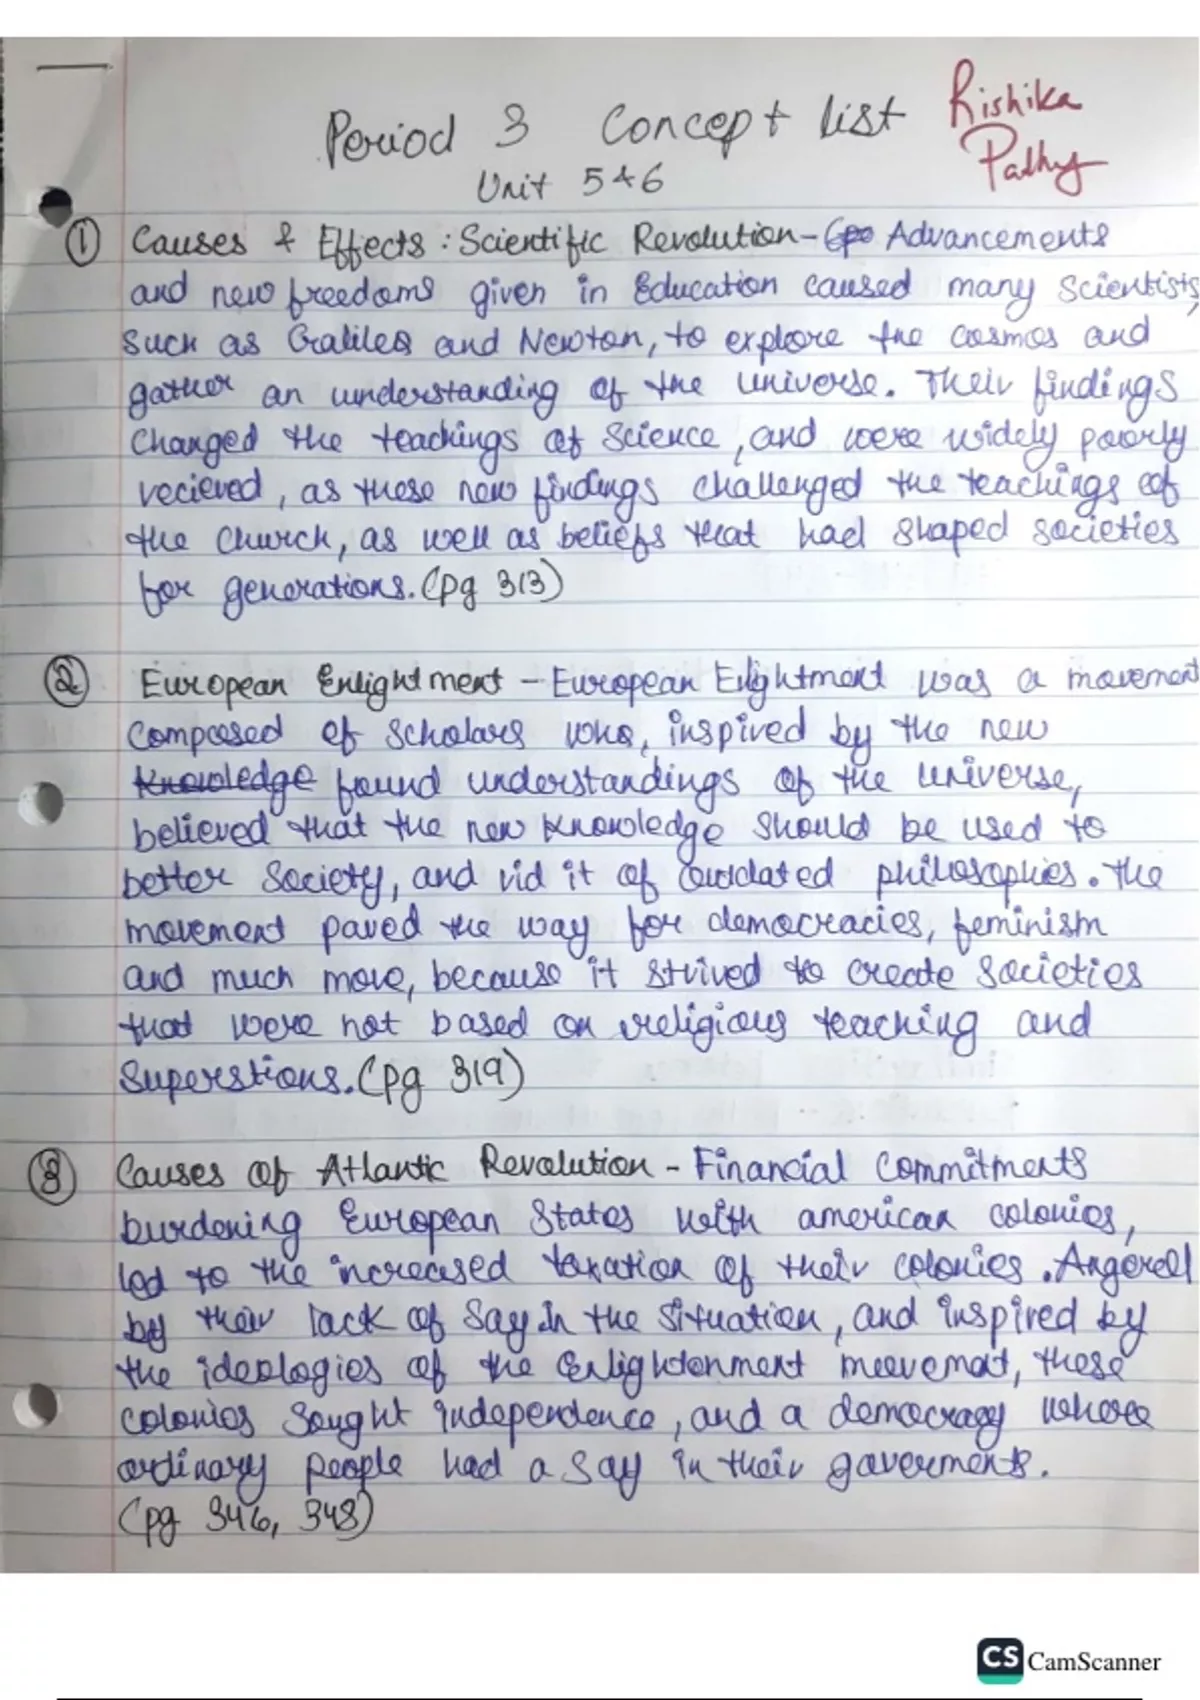 Period 3 Concept list Rishika
Unit 5&6 Pathy
① Causes & Effects : Scientific Revolution - Advancements
and new freedoms given in Education caused many Scientists,
such as Galileo and Newton, to explore the cosmos and
gather an understanding of the universe. Their findings
changed the teachings of science, and were widely poorly
recieved, as these new findings challenged the teachings of
the church, as well as beliefs that had shaped societies
for generations. (pg 313)
② European Enlightment - European Enlightment was a movement
composed of scholars who, inspired by the new
Knowledge found understandings of the universe,
believed that the new knowledge should be used to
better society, and rid it of outdated philosophies. The
movement paved the way for democracies, feminism
and much more, because it strived to create societies
that were not based on religious teaching and
Superstions. (pg 319)
③ Causes of Atlantic Revolution - Financial commitments
burdening European States with american colonies,
led to the increased taxation of their colonies. Angered
by their lack of say in the situation, and inspired by
the ideologies of the Enlightenment movement, these
colonies sought independence, and a democracy where
ordinary people had a say in their goverments.
(pg 346, 348)
CS CamScanner